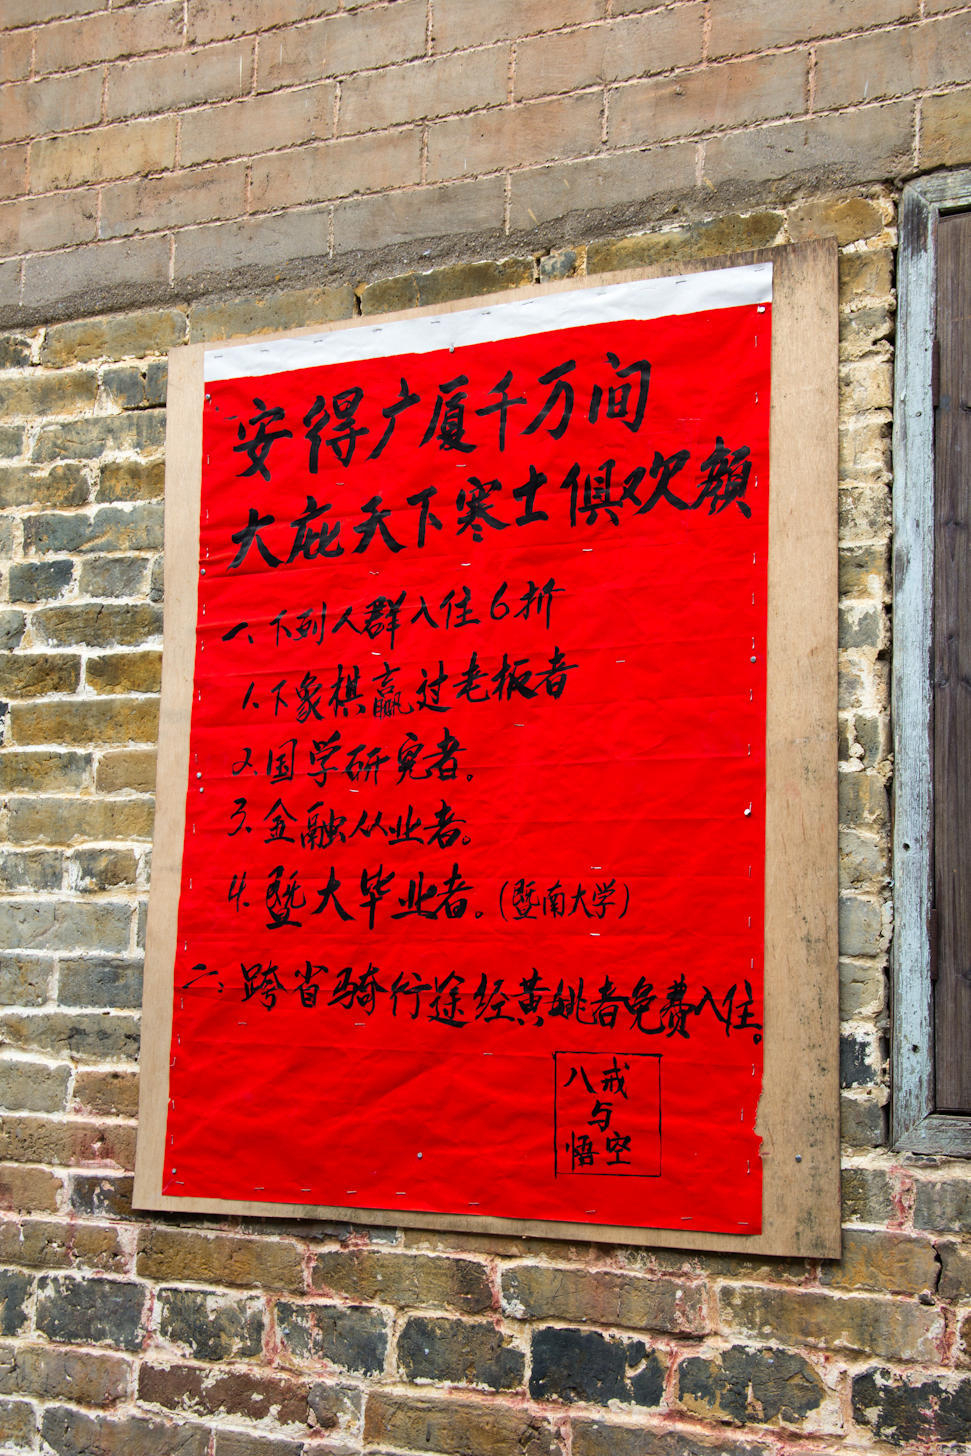 安得广厦千万间
大庇天下寒士俱欢颜
一、下列人群入住6折
1.下象棋赢过老板者
2.国学研究者。
3.金融从业者。
4.暨大毕业者。(暨南大学)
二:跨省骑行途经黄姚者免费入住。
八戒
与
悟空